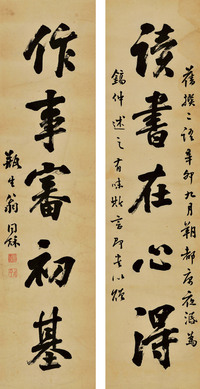 讀書在心得
舊撰二語辛卯九月朔都門夜語為
鎬仲述之有味斯言即書以贈
作事審初基
瓶生翁同龢